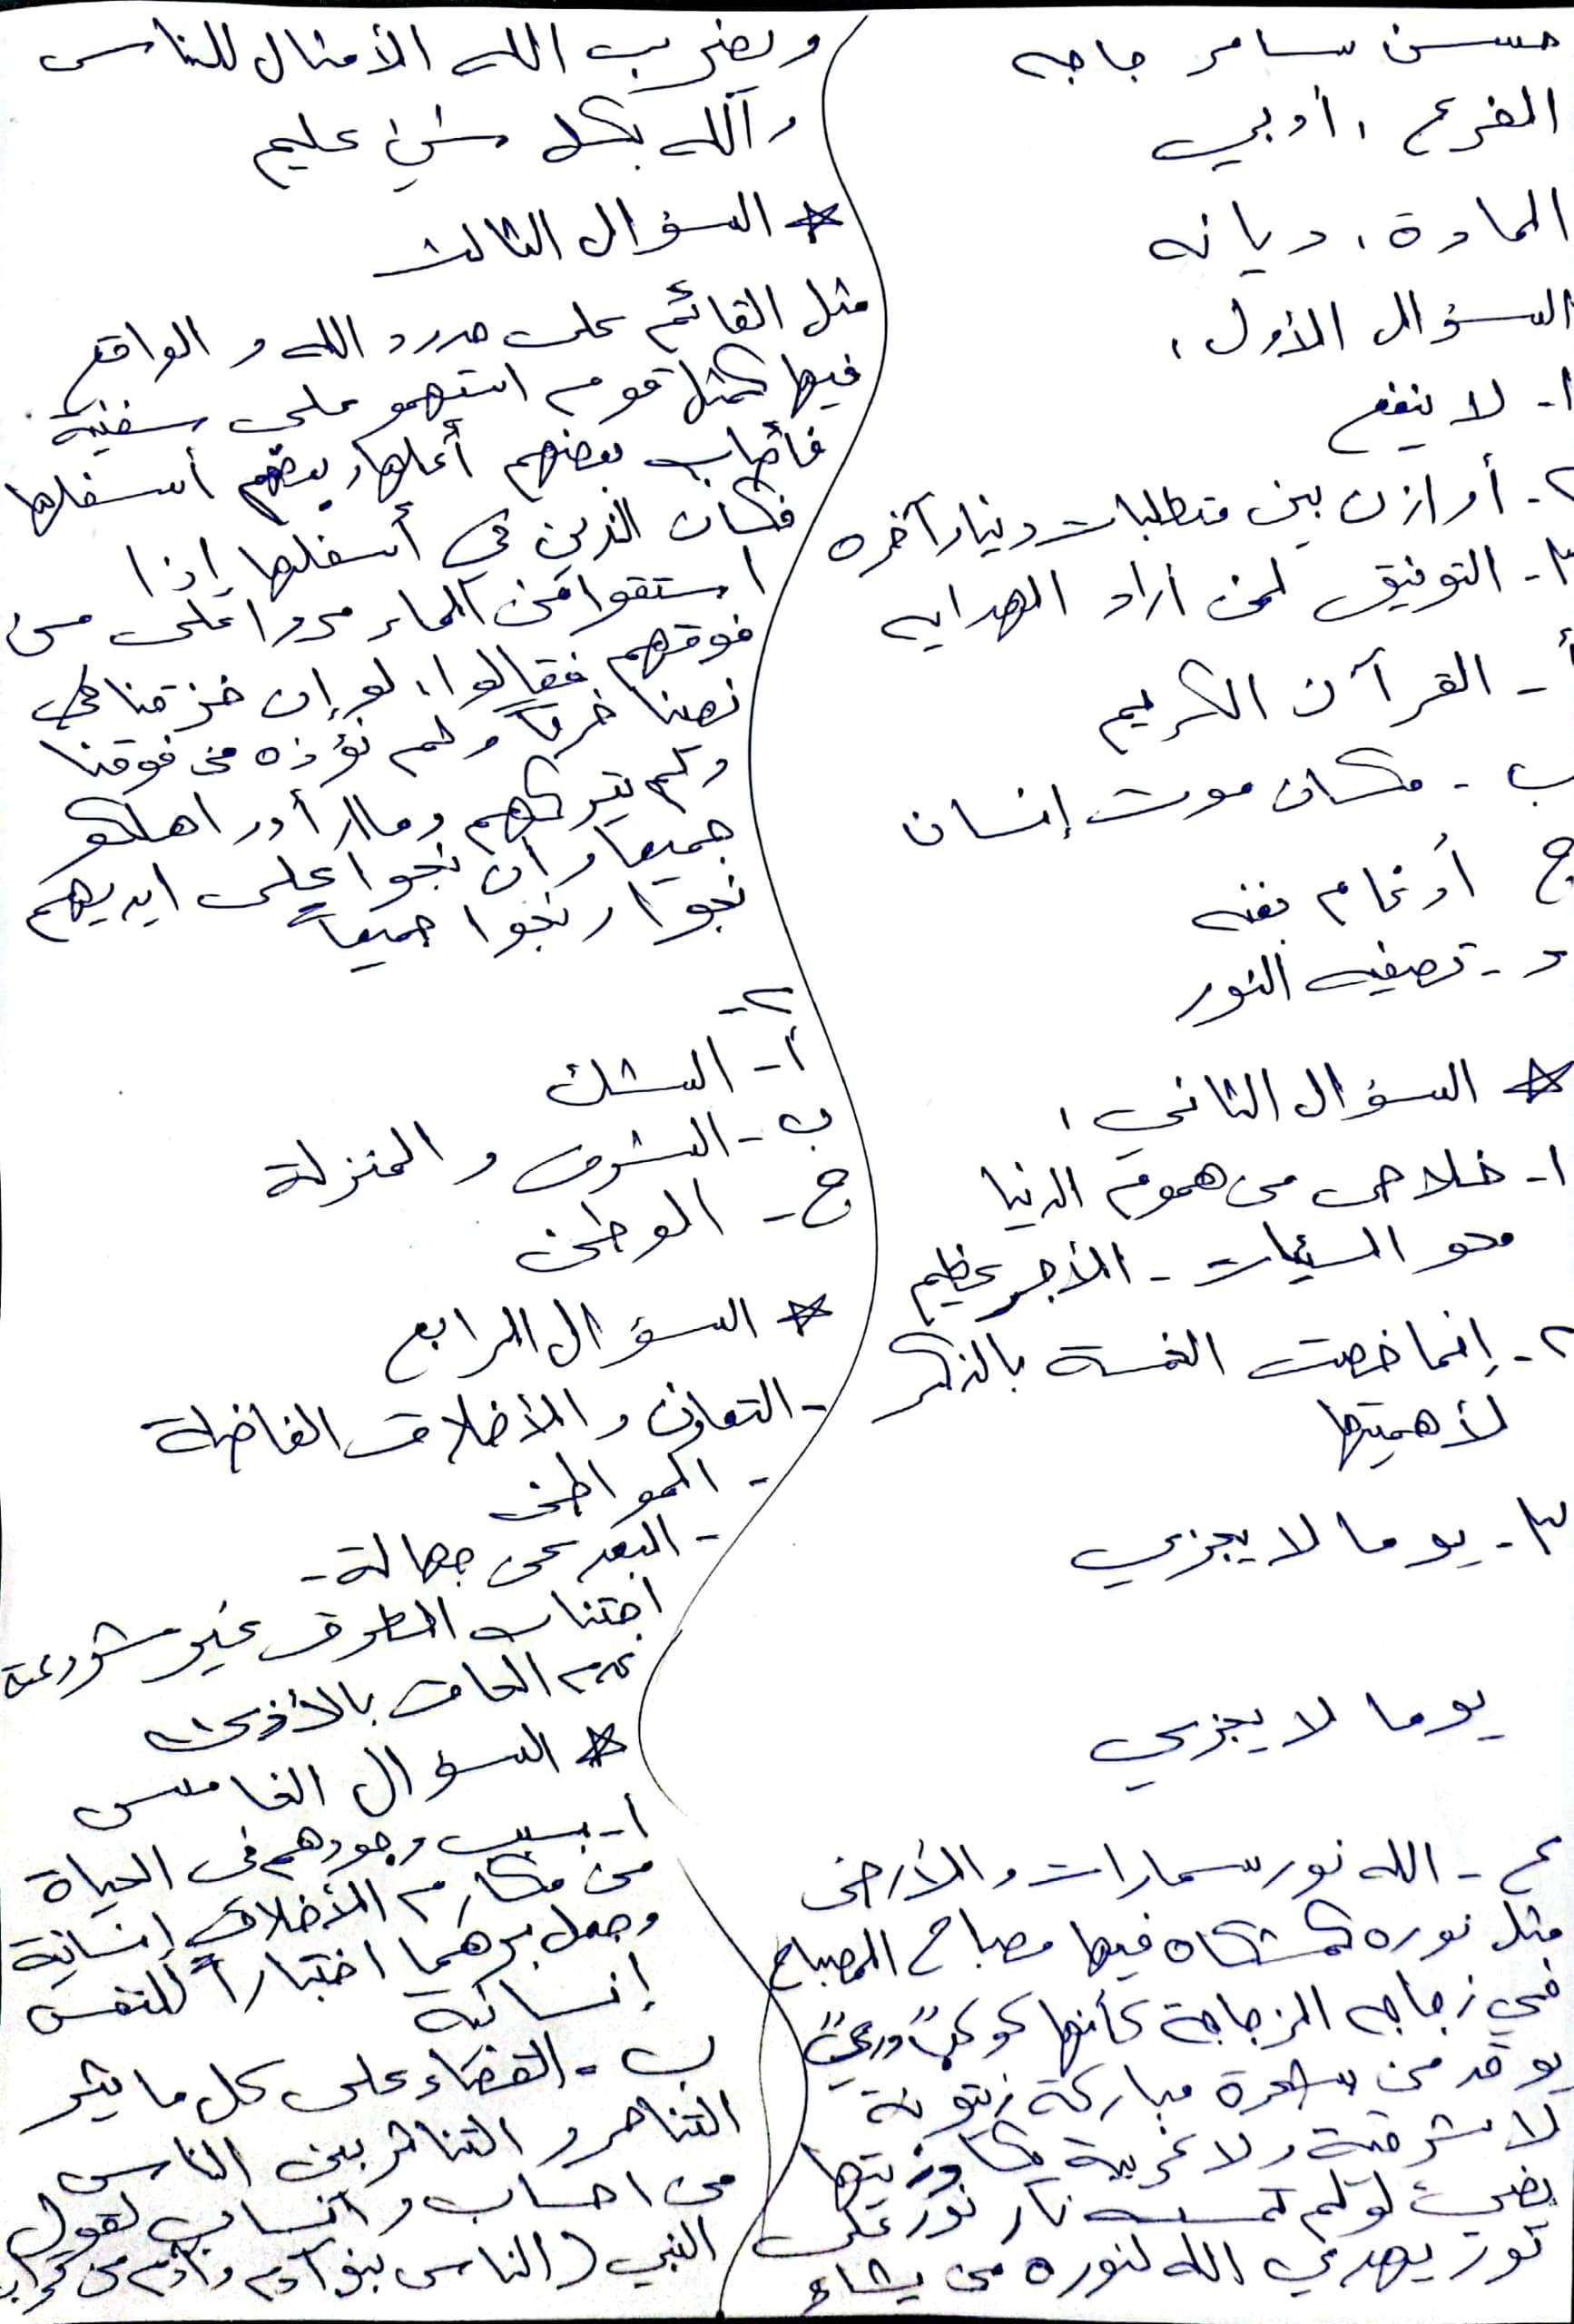 حسن سامر جاجه
الفرع، أدبي
المادة، ديانه
السؤال الأول،
١- لا ينفع
٢- أوازن بين متطلبات دنيا و آخره
٣- التوفيق لمن أراد الهدايه
أ- القرآن الكريم
ب- مكان موت إنسان
ج أدغام بغنه
د- تصفيه النور
* السؤال الثاني،
١- خلاص من هموم الدنيا
محو السيئات - الأجر عظيم
٢- إنما خصت الخمسة بالذكر
لأهميتها
٣- يوما لا يجزي
يوما لا يجزي
ع- الله نور سمارات والأرض
مثل نوره كمشكاه فيها مصباح المصباح
في زجاجه الزجاجة كأنها كوكبً دريً
يوقد من شجرة مباركة زيتونة
لا شرقية ولا غربية يكاد زيتها
يضيئ لو لم تمسسه نار نور على
نور يهدي الله لنوره من يشاء
ويضرب الله الأمثال للناس
والله بكل شيئ عليم
* السؤال الثالث
مثل القائم على حدود الله و الواقع
فيها كمثل قوم استهمو على سفينة
فأصاب بعضهم أعلاها وبعضهم أسفلها
فكان الذين في أسفلها إذا
استقوا من الماء مروا على من
فوقهم فقالوا، لو إن خرقنا في
نصبنا خرقاً ولم نؤذه من فوقنا
ولم يتركهم وما أرادوا اهلكو
جميعا وان نجوا على ايديهم
نجوا ونجوا جميعاً
٢-
أ- الشك
ب- الشرف و المنزلة
ج- الوطن
* السؤال الرابع
- التعاون و الأخلاق الفاضلة
- المواطن
- البعد عن جهالة -
اجتناب الطرق غير مشروعة
عدم الحاق بالأذى
* السؤال الخامس
أ- بسبب وجودهم في الحياة
من مكارم الأخلاق إنسانية
وجعل برهما اختباراً للنفس
إنسانية
ب- القضاء على كل ما يثير
التناحر و التنافر بين الناس
من احساب و انساب لقول
النبي (الناس بنو آدم وآدم من تراب